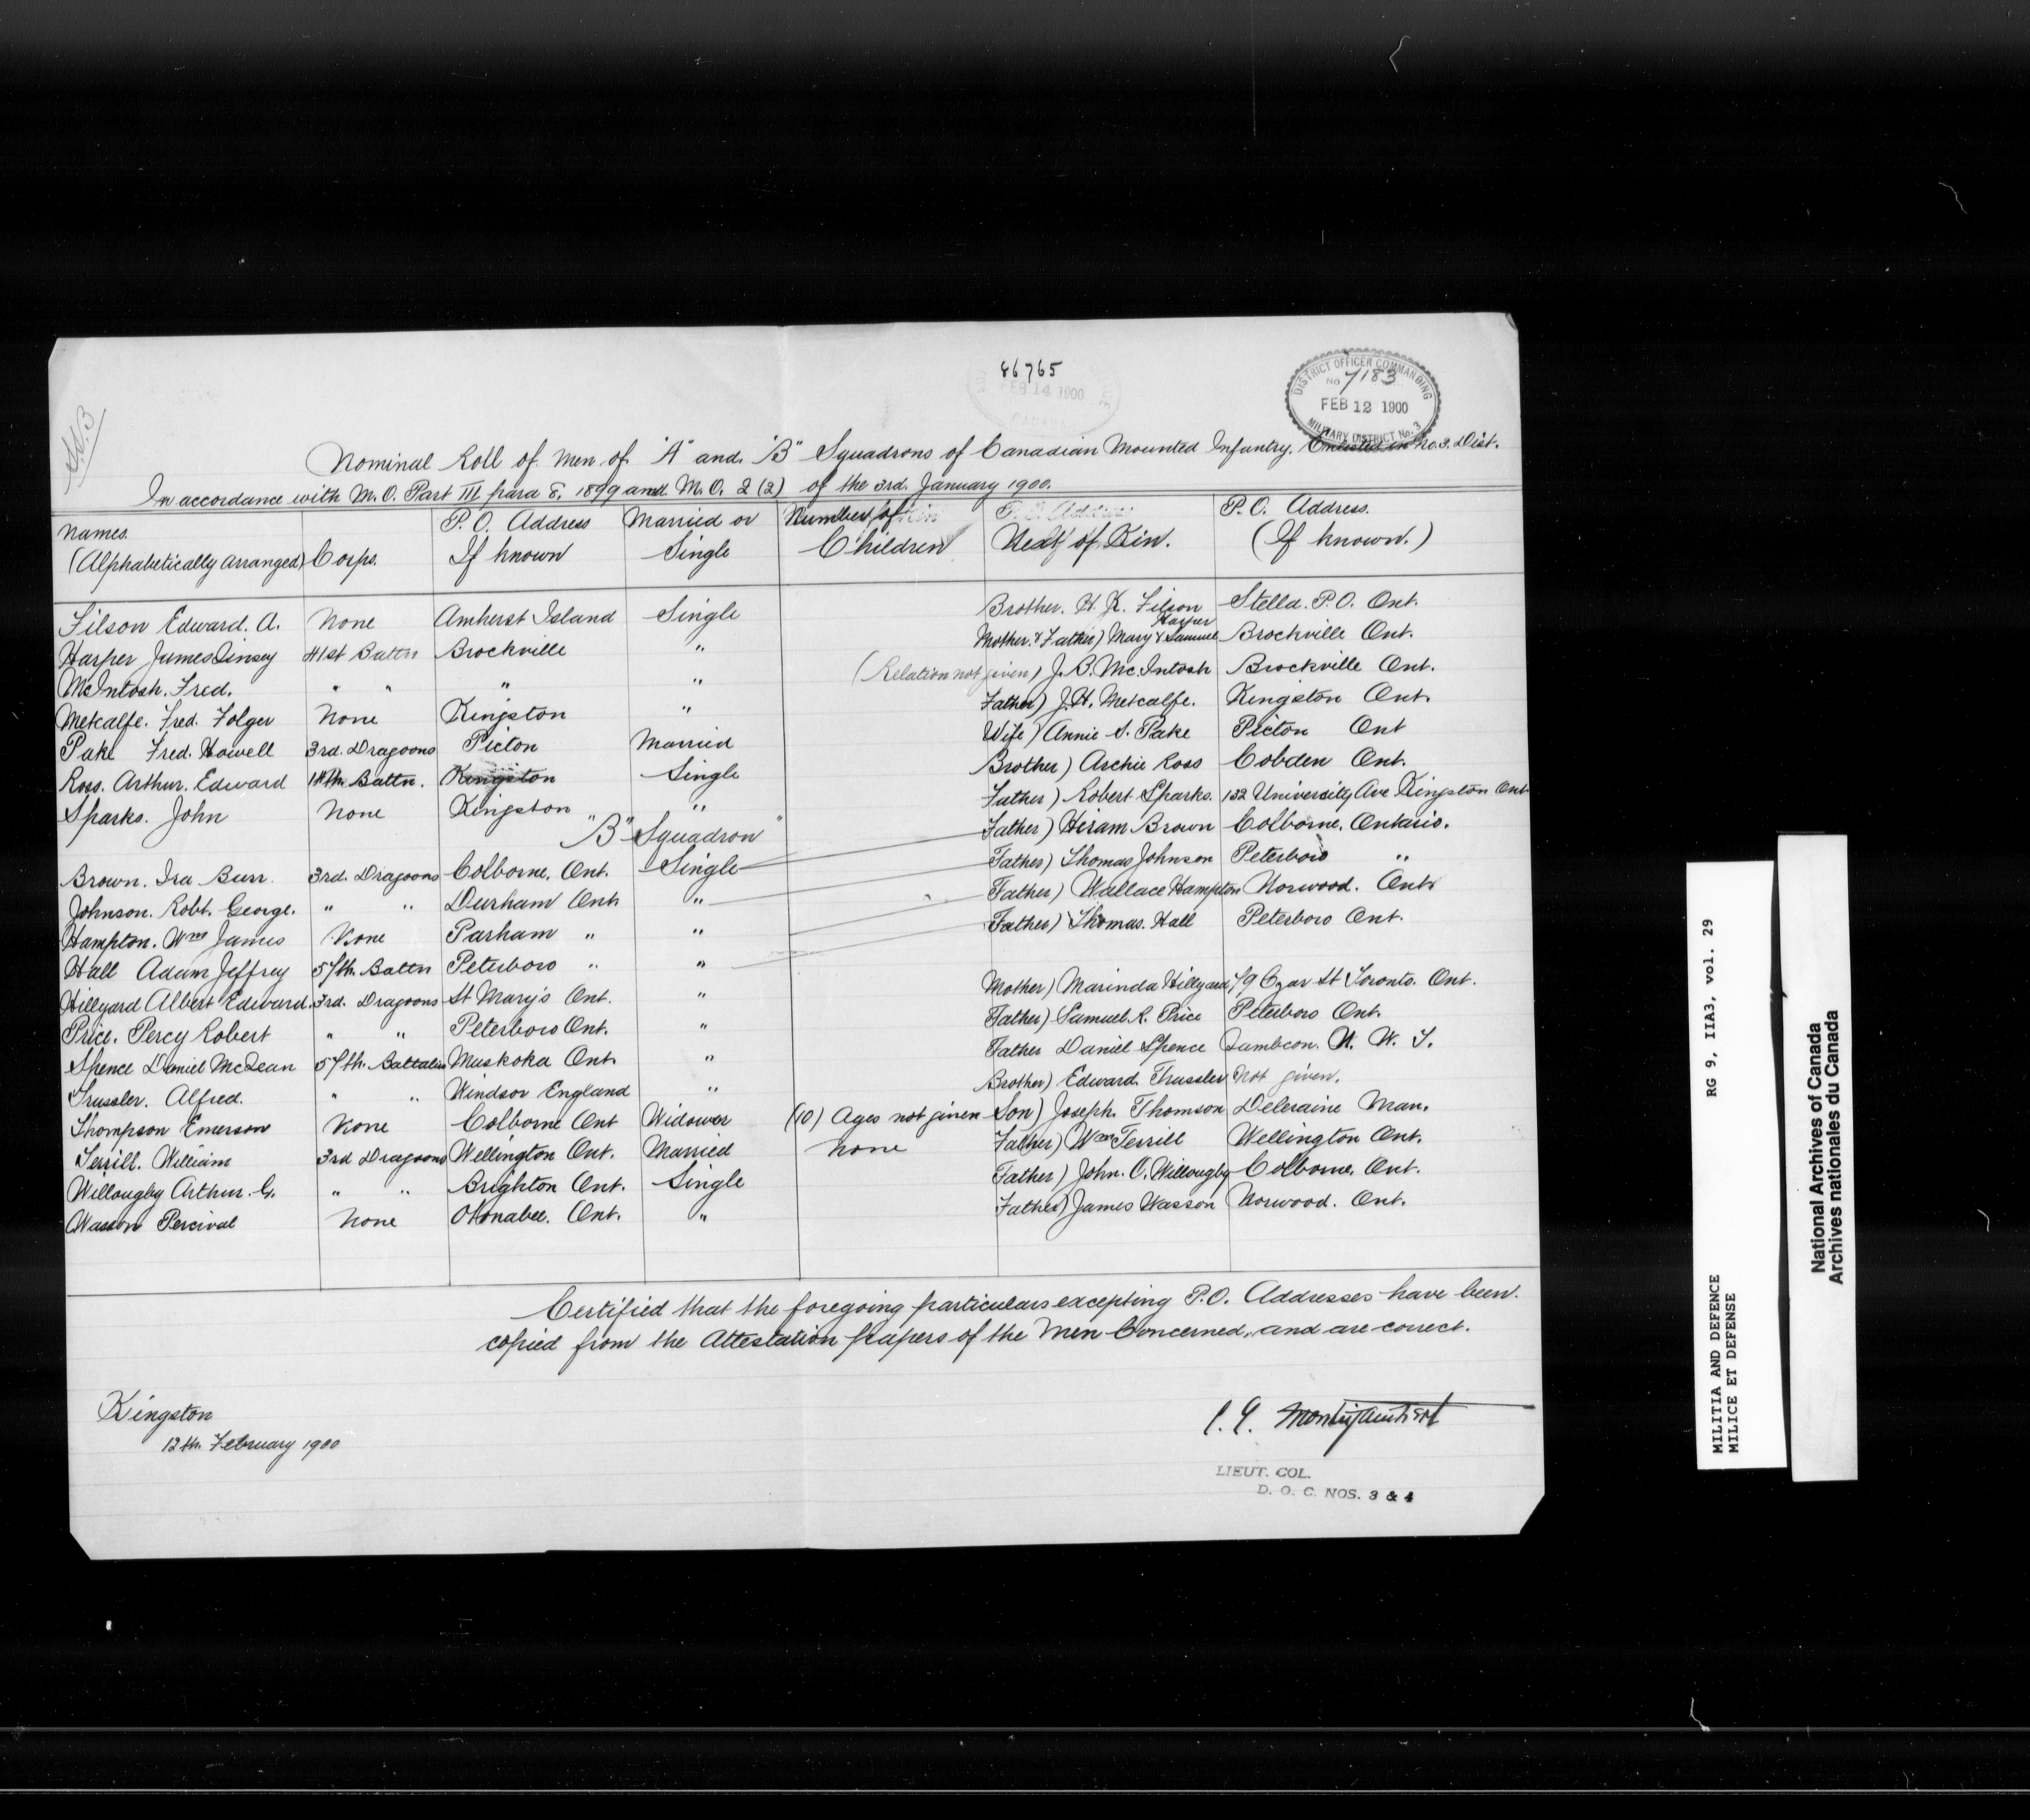 86765
FEB 14 1900
CANADA
DISTRICT OFFICER COMMANDING
No 7183
FEB 12 1900
MILITARY DISTRICT No. 3
Nominal Roll of Men of "A" and "B" Squadrons of Canadian Mounted Infantry. Enlisted in No. 3. Dist.
In accordance with M.O. Part III para 8. 1899 and M.O. 2 (2) of the 3rd. January 1900.
Names. (Alphabetically arranged) Corps. P.O. Address If known Married or Single Number of Children Next of Kin. P.O. Address. (If known.)
Filson Edward. A. None Amherst Island Single Brother. H. K. Filson Stella. P.O. Ont.
Harper James Linsey 41st Battn Brockville " Mother. & Father) Mary & Samuel Harper Brockville Ont.
McIntosh. Fred. " " " " (Relation not given) J. B. McIntosh Brockville Ont.
Metcalfe. Fred. Folger None Kingston " Father) J. H. Metcalfe. Kingston Ont.
Pake Fred. Howell 3rd. Dragoons Picton Married Wife) Annie S. Pake Picton Ont
Ross. Arthur. Edward 14th. Battn. Kingston Single Brother) Archie Ross Cobden Ont.
Sparks. John None Kingston " Father) Robert Sparks. 132 University Ave Kingston Ont
"B" Squadron
Brown. Ira Burr. 3rd. Dragoons Colborne. Ont. Single Father) Hiram Brown Colborne. Ontario.
Johnson. Robt. George. " " Durham Ont " Father) Thomas Johnson Peterboro "
Hampton. Wm James None Parham " " Father) Wallace Hampton Norwood. Ont
Hall Adam Jeffrey 57th. Battn Peterboro " " Father) Thomas. Hall Peterboro Ont.
Hillyard Albert Edward. 3rd. Dragoons St Mary's Ont. " Mother) Marinda Hillyard 79 Czar St Toronto. Ont.
Price. Percy Robert " " Peterboro Ont. " Father) Samuel. R. Price Peterboro Ont.
Spence Daniel McLean 57th. Battalion Muskoka Ont. " Father Daniel Spence N. W. T.
Trussler. Alfred. " " Windsor England " Brother) Edward. Trussler Not given.
Thompson Emerson None Colborne Ont Widower (10) Ages not given Son) Joseph. Thomson Deleraine Man.
Terrill. William 3rd Dragoons Wellington Ont. Married None Father) Wm Terrill Wellington Ont.
Willougby Arthur. G. " " Brighton Ont. Single Father) John. O. Willougby Colborne. Ont.
Wasson Percival None Otonabee. Ont. " Father) James Wasson Norwood. Ont.
Certified that the foregoing particulars excepting P.O. Addresses have been.
copied from the Attestation papers of the Men Concerned, and are correct.
Kingston
12th. February 1900
LIEUT. COL.
D. O. C. NOS. 3 & 4
MILITIA AND DEFENCE RG 9, IIA3, vol. 29
MILICE ET DEFENSE
National Archives of Canada
Archives nationales du Canada